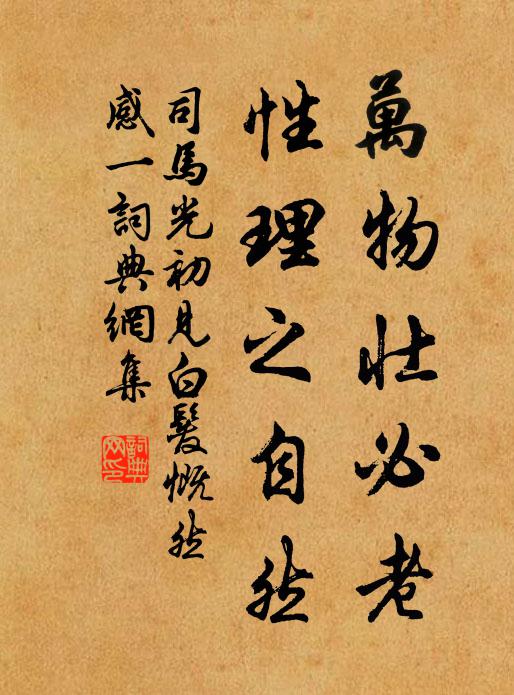 萬物壯必老
性理之自然
司馬光初見白髮慨然
感一詞典網集
詞典
网印